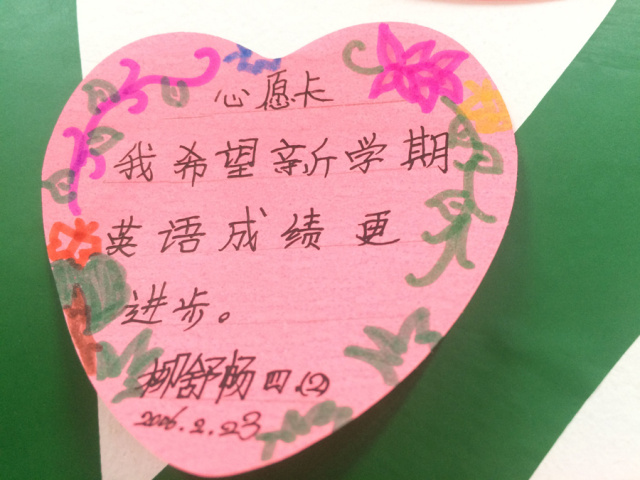 心愿卡
我希望新学期
英语成绩更
进步。
柳舒畅四(2)
2006.2.23